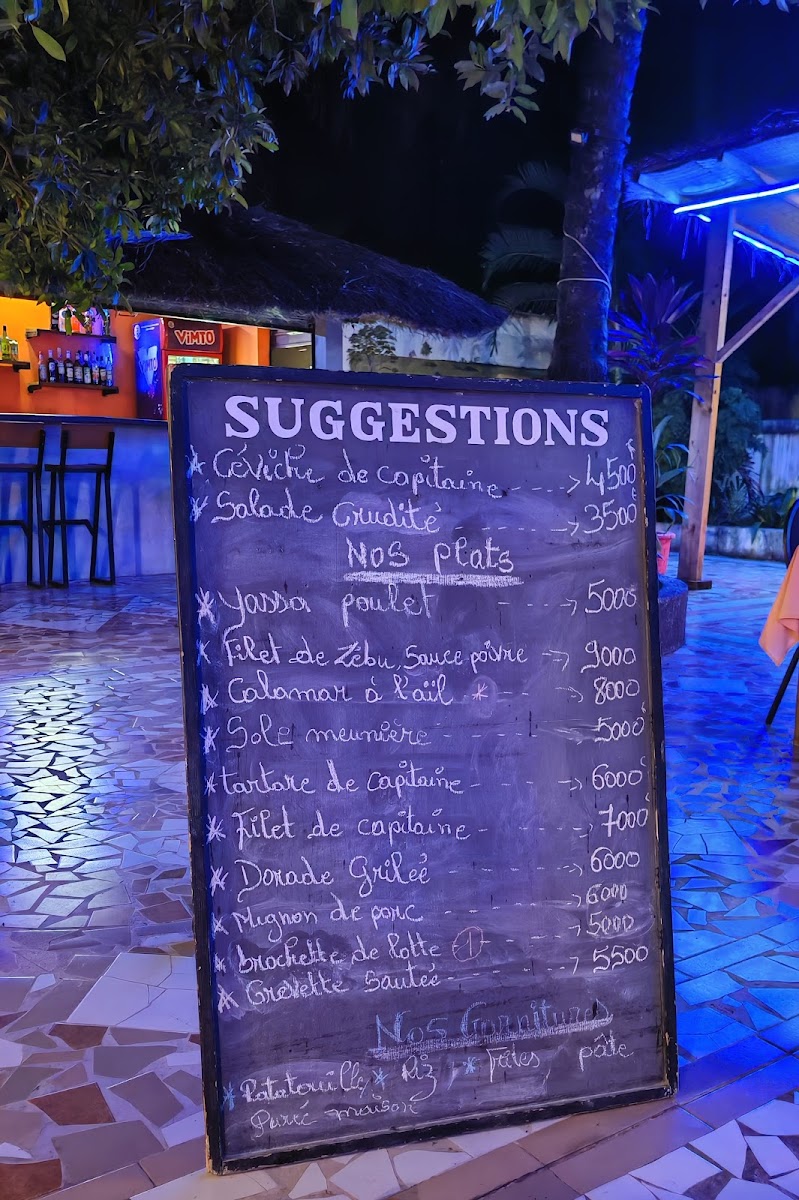 VIMTO
SUGGESTIONS
* Céviche de capitaine ----> 4500
* Salade Crudité ----> 3500
Nos plats
* Yassa poulet ----> 5000
* Filet de Zébu, Sauce poivre --> 9000
* Calamar à l'aïl * ----> 8000
* Sole meunière ---- 5000
* tartare de capitaine ----> 6000
* Filet de capitaine ----> 7000
* Dorade Grileé ----> 6000
* Mignon de porc ----> 6000
* brochette de lotte 1 ----> 5000
* Grevette Sauteé ----> 5500
Nos Garnitures
* Ratatouille * Riz * pâte
Pureé maison